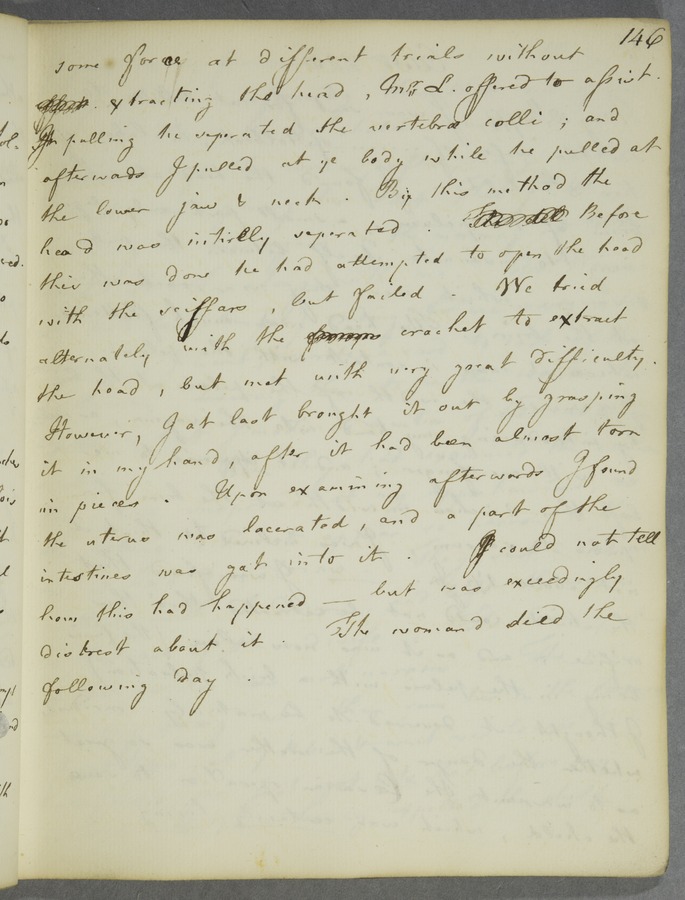 146
some force at different trials without
extracting the head, Mr. L. offered to assist.
In pulling he seperated the vertebra colli; and
afterwads I pulled at ye body while he pulled at
the lower jaw & neck. By this method the
head was intirelly seperated. Before
this was done he had attempted to open the head
with the scissars, but failed. We tried
alternately with the crochet to extract
the head, but met with very great difficulty.
However, I at last brought it out by grasping
it in my hand, after it had been almost torn
in pieces. Upon examining afterwords I found
the uterus was lacerated, and a part of the
intestines was got into it. I could not tell
how this had happened — but was exceedingly
distrest about it. The womand died the
following day.